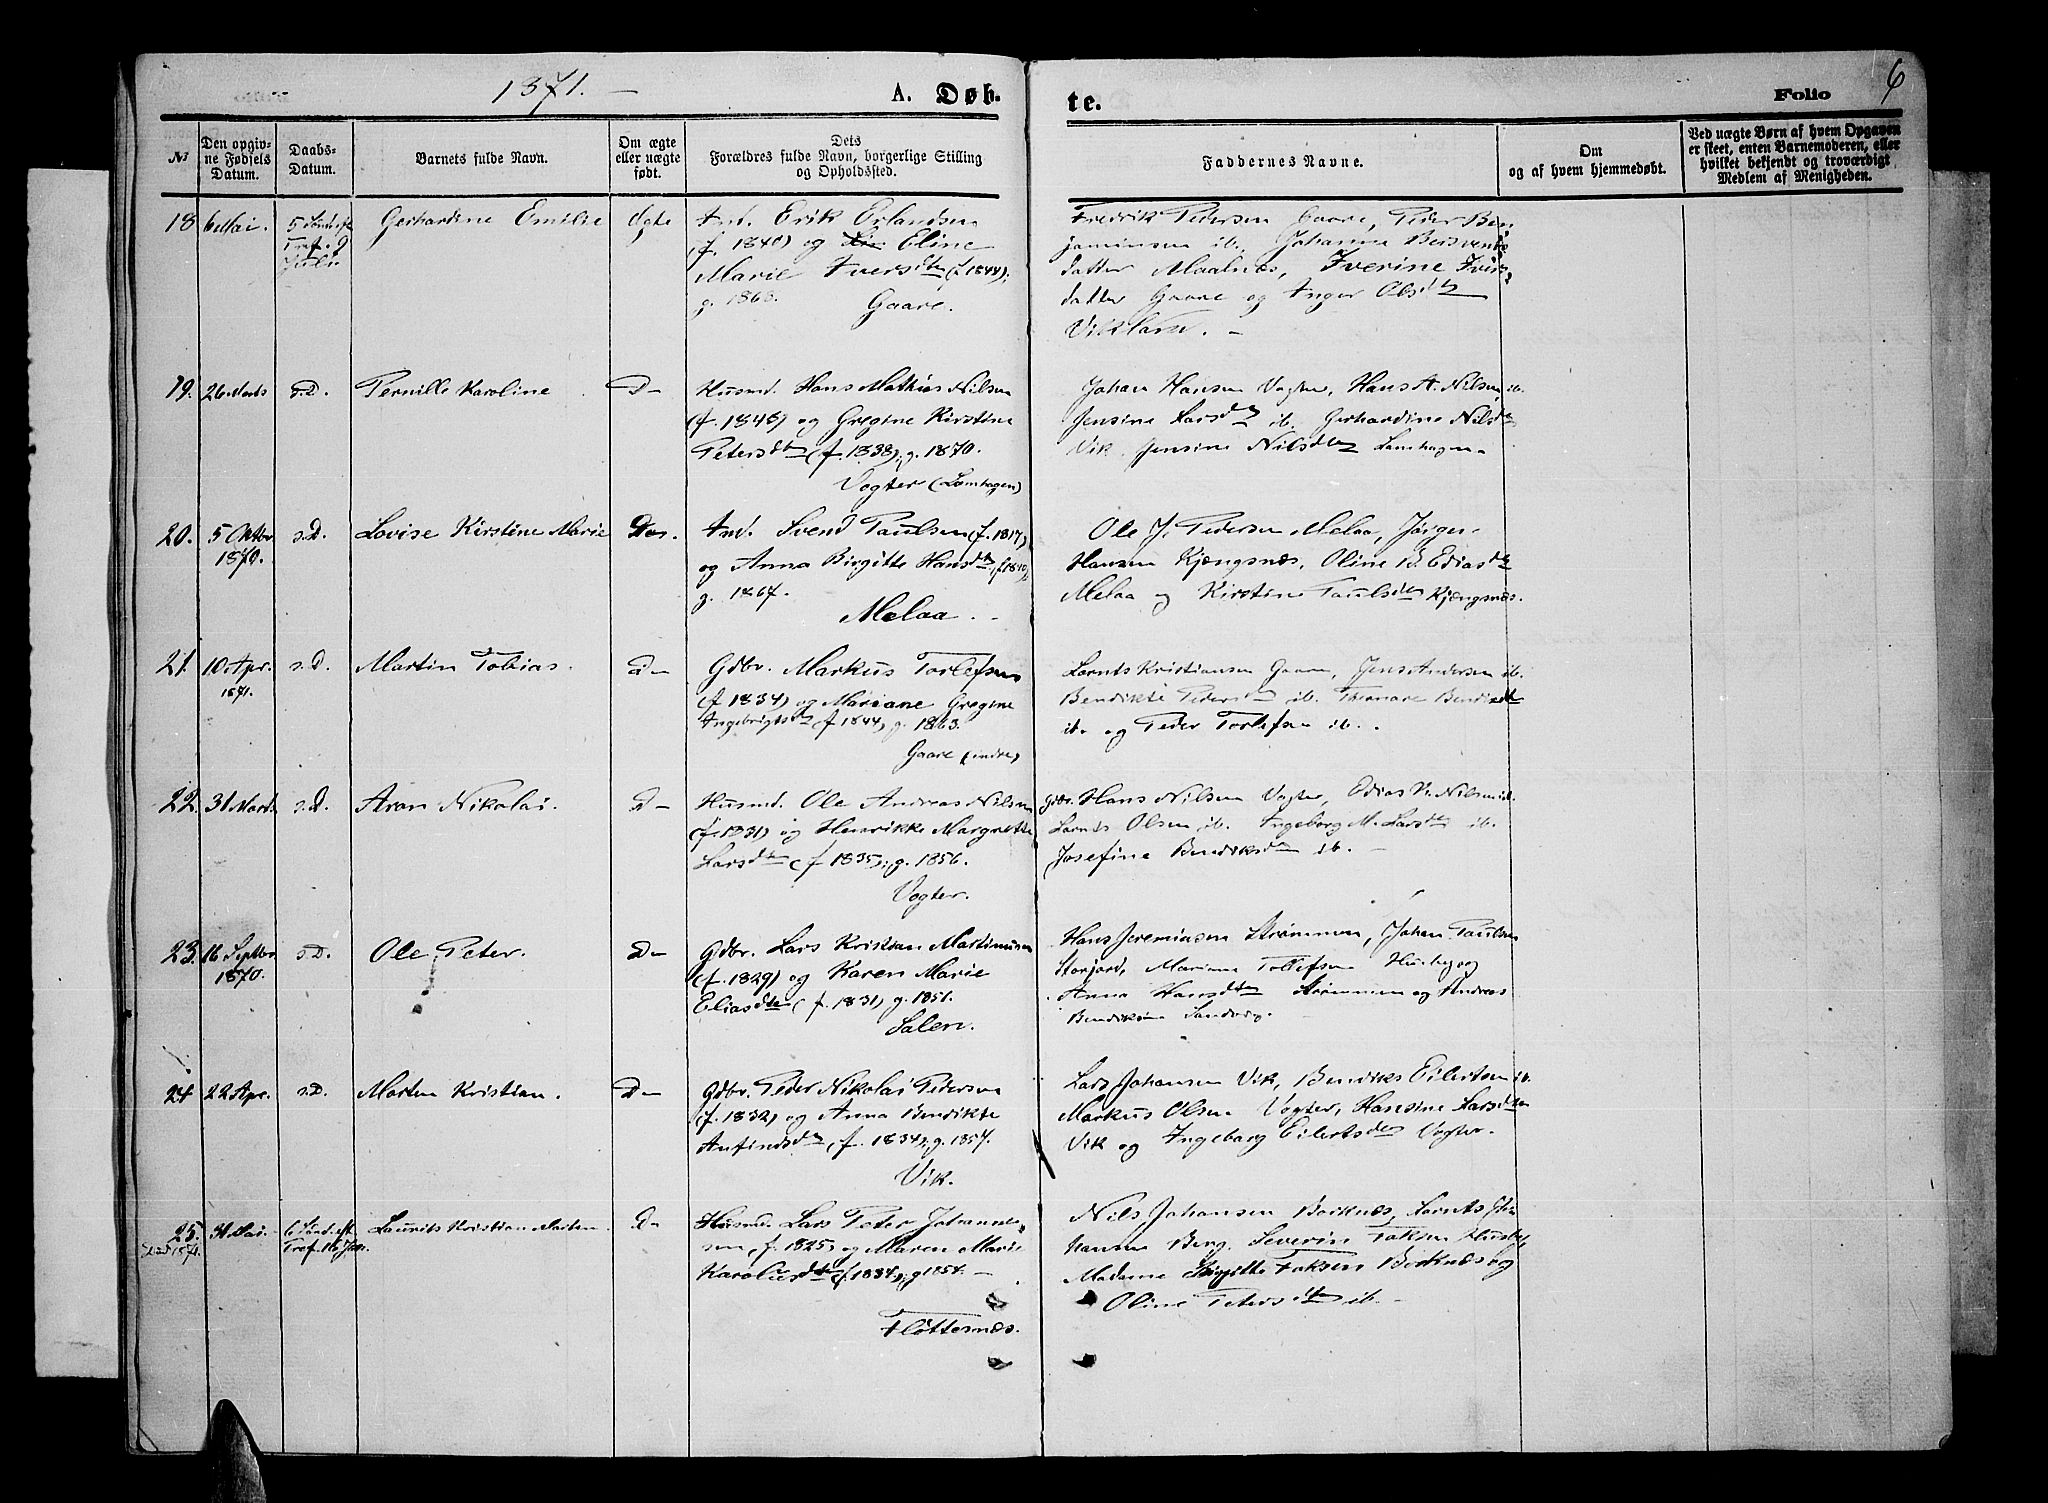 1871. —
A. Døb-
te.
Folio 6
No
Den opgiv-
ne Fødsels
Datum.
Daabs-
Datum.
Barnets fulde Navn.
Om ægte
eller uægte
født.
Dets
Forældres fulde Navn, borgerlige Stilling
og Opholdssted.
Faddernes Navne.
Om
og af hvem hjemmedøbt.
Ved uægte Børn af hvem Opgaven
er skeet, enten Barnemoderen, eller
hvilket bekjendt og troværdigt
Medlem af Menigheden.
18
6 Mai.
5 Sønd. eft.
Tref. 9
Juli
Gerhardine Emilie
Ægte
Ind. Erik Erlandsen
(f. 1840) og Eline
Marie Iversdtr (f. 1844);
g. 1868.
Gaare.
Fredrik Pedersen Gaare, Peder Ben-
jaminsen ib. Johanna Bersvends-
datter Maalnes, Iverine Ivers-
datter Gaare og Inger Olsdtr
19.
26 Marts
s.D.
Pernille Karoline
D—
Husmd. Hans Mathias Nilsen
(f. 1848) og Gregine Kirstine
Petersdtr (f. 1838); g. 1870.
Vogter (Lamhagen)
Johan Hansen Vogter, Hans A. Nilsen, ib.
Jensine Larsdtr ib. Gerhardine Nilsdtr
Vik. Jensine Nilsdtr Lamhagen
20.
5 Oktbr
1870.
s.D.
Lovise Kirstine Marie
Do.
Ind. Svend Paulsen (f. 1817)
og Anna Birgitte Hansdtr (f. 1840);
g. 1867.
Melaa. —
Ole J. Pedersen Melaa, Jørgen
Hansen Kjengsnæs, Oline B. Ediasdtr
Melaa og Kirstine Paulsdtr Kjengsnæs.
21.
10 Apr.
1871.
s.D.
Martin Tobias.
D—
Gdbr. Markus Torlefsen
(f. 1834) og Mariane Gregine
Ingebrigtsdtr (f. 1844); g. 1863.
Gaare (indre)
Lornts Kristiansen Gaare, Jens Andersen ib.
Bendikte Pedersdtr ib. Bendiksdtr
ib. og Peder Torlefsen ib.
22.
31 Marts
s.D.
Aron Nikolai.
D—
Husmd. Ole Andreas Nilsen
(f. 1831) og Henrikke Margrethe
Larsdtr (f. 1835); g. 1856.
Vogter.
Gdbr. Hans Nilsen Vogter, Edias N. Nilsen ib.
Lornts Olsen ib. Ingeborg M. Larsdtr ib.
Josefine Bendiksdtr ib. —
23.
16 Septbr
1870.
s.D.
Ole Peter.
D—
Gdbr. Lars Kristian Martinusen
(f. 1829) og Karen Marie
Eliasdtr (f. 1831) g. 1851.
Salen.
Hans Jeremiasen Strømmen, Johan Paulsen
Storjord, Mariane Tollefsen Husby og
Anna Hansdtr Strømmen og Andreas
Bendiksen Sandvig.
24
22 Apr.
s.D.
Morten Kristian.
D—
Gdbr. Peder Nikolai Pedersen
(f. 1832) og Anna Bendikte
Anfindsdtr (f. 1834); g. 1857.
Vik.
Lars Johansen Vik, Bendiks Eilertsen ib.
Markus Olsen Vogter, Hansine Larsdtr
Vik og Ingeborg Eilertsdtr Vogter.
25.
31 Mai.
6 Sønd. eft.
Tref. 16 Juli.
Laurits Kristian Morten.
D—
Husmd. Lars Peter Johanne-
sen (f. 1825) og Maren Marie
Karoliusdtr (f. 1834); g. 1854. —
Fløtternæs.
Nils Johansen Borknæs, Lornts Jo-
hansen Berg. Severin Falksen Husby,
Madame Birgitte Falksen Borknæs og
Oline Petersdtr ib. —